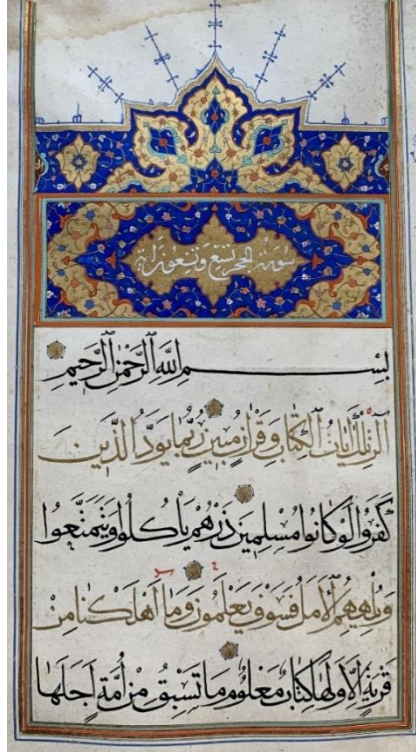 سورة الحجر تسع وتسعون اية
بسم الله الرحمن الرحيم
الر تلك ايات الكتاب وقران مبين ربما يود الذين
كفروا لو كانوا مسلمين ذرهم ياكلوا ويتمتعوا
ويلههم الامل فسوف يعلمون وما اهلكنا من
قرية الا ولها كتاب معلوم ما تسبق من امة اجلها